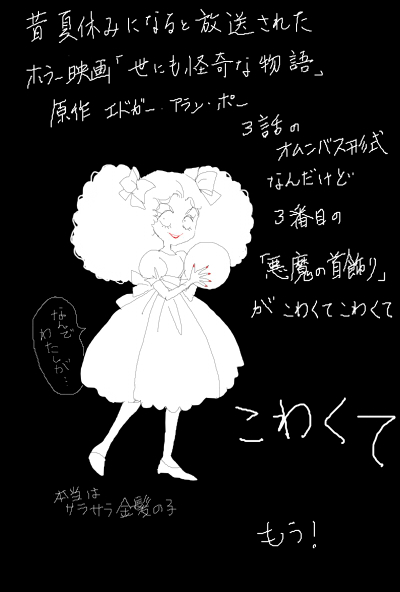 昔夏休みになると放送された
ホラー映画「世にも怪奇な物語」
原作 エドガー・アラン・ポー
3話の
オムンバス形式
なんだけど
3番目の
「悪魔の首飾り」
が こわくてこわくて
なんで
わたしが…
こわくて
本当は
サラサラ金髪の子
もう!